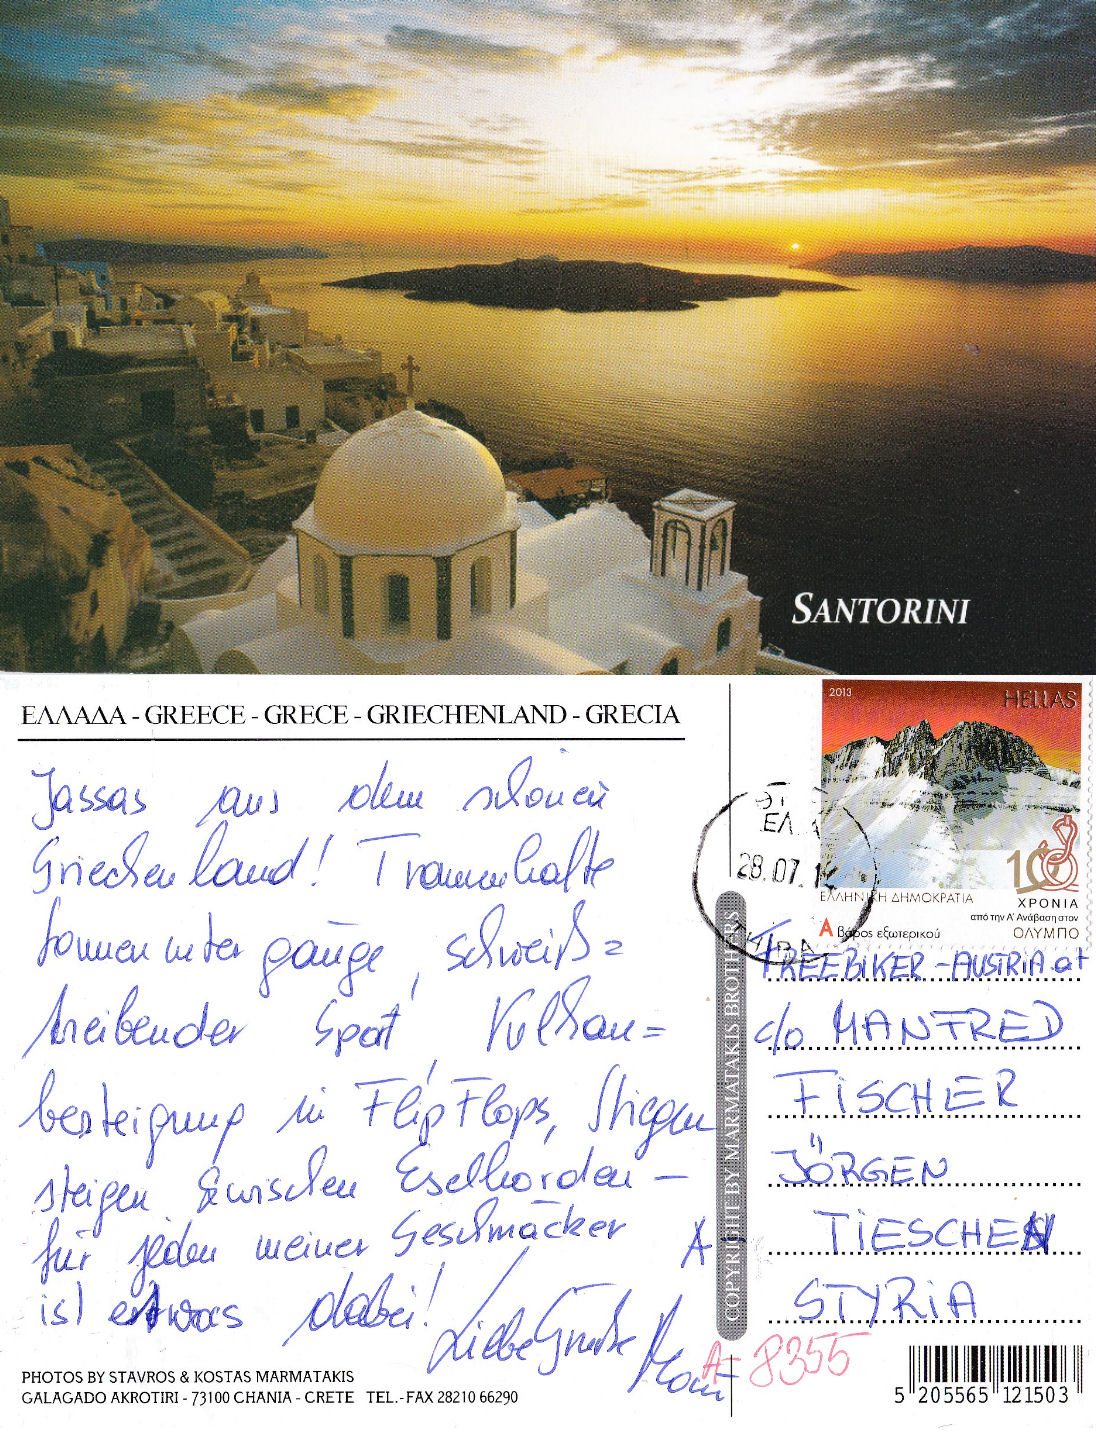 SANTORINI
ΕΛΛΑΔΑ - GREECE - GRECE - GRIECHENLAND - GRECIA
Jassas aus dem schönen
Griechenland! Traumhafte
Sonnenuntergänge, schweiß=
treibender Sport, Vulkan=
besteigung in FlipFlops, Stiegen
steigen zwischen Eselhorden -
für jeden meiner Geschmäcker
ist etwas dabei!
Liebe Grüße
PHOTOS BY STAVROS & KOSTAS MARMATAKIS
GALAGADO AKROTIRI - 73100 CHANIA - CRETE TEL.-FAX 28210 66290
COPYRIGHT BY MARMATAKIS BROTHERS
2013
HELLAS
ΕΛΛΗΝΙΚΗ ΔΗΜΟΚΡΑΤΙΑ
ΧΡΟΝΙΑ
από την Α' Ανάβαση στον
ΟΛΥΜΠΟ
Α βάρος εξωτερικού
28.07.
FREEBIKER-AUSTRIA.at
c/o MANFRED
FISCHER
JÖRGEN
A- TIESCHEN
STYRIA
A- 8355
5 205565 121503